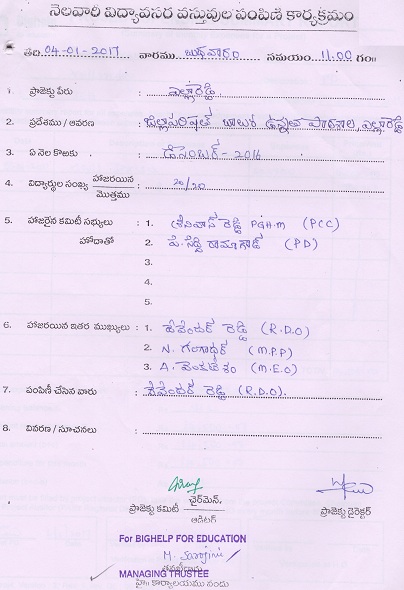 నెలవారి విద్యావసర వస్తువుల పంపిణి కార్యక్రమం
తేది: 04-01-2017 వారము బుధవారం సమయం 11.00 గం॥
1. ప్రాజెక్టు పేరు : ఎల్లారెడ్డి
2. ప్రదేశము / ఆవరణ : జిల్లాపరిషత్ బాలుర ఉన్నత పాఠశాల, ఎల్లారెడ్డి
3. ఏ నెల కొఱకు : డిసెంబర్ - 2016
4. విద్యార్థుల సంఖ్య హాజరయిన / మొత్తము : 20/20
5. హాజరైన కమిటీ సభ్యులు : 1. శ్రీనివాస్ రెడ్డి PGHM (PCC)
హోదాతో 2. పి. సిద్ది రామాగౌడ్ (PD)
3.
4.
5.
6. హాజరయిన ఇతర ముఖ్యులు : 1. దేవేందర్ రెడ్డి (R.D.O)
2. N. గంగాధర్ (M.P.P)
3. A. వెంకటేశం (M.E.O)
7. పంపిణీ చేసిన వారు : దేవేందర్ రెడ్డి (R.D.O).
8. వివరణ / సూచనలు :
ప్రాజెక్టు కమిటీ చైర్మెన్. ప్రాజెక్టు డైరెక్టర్
ఆడిటర్
For BIGHELP FOR EDUCATION
M. Sarojini
MANAGING TRUSTEE
హెడ్ కార్యాలయము నందు